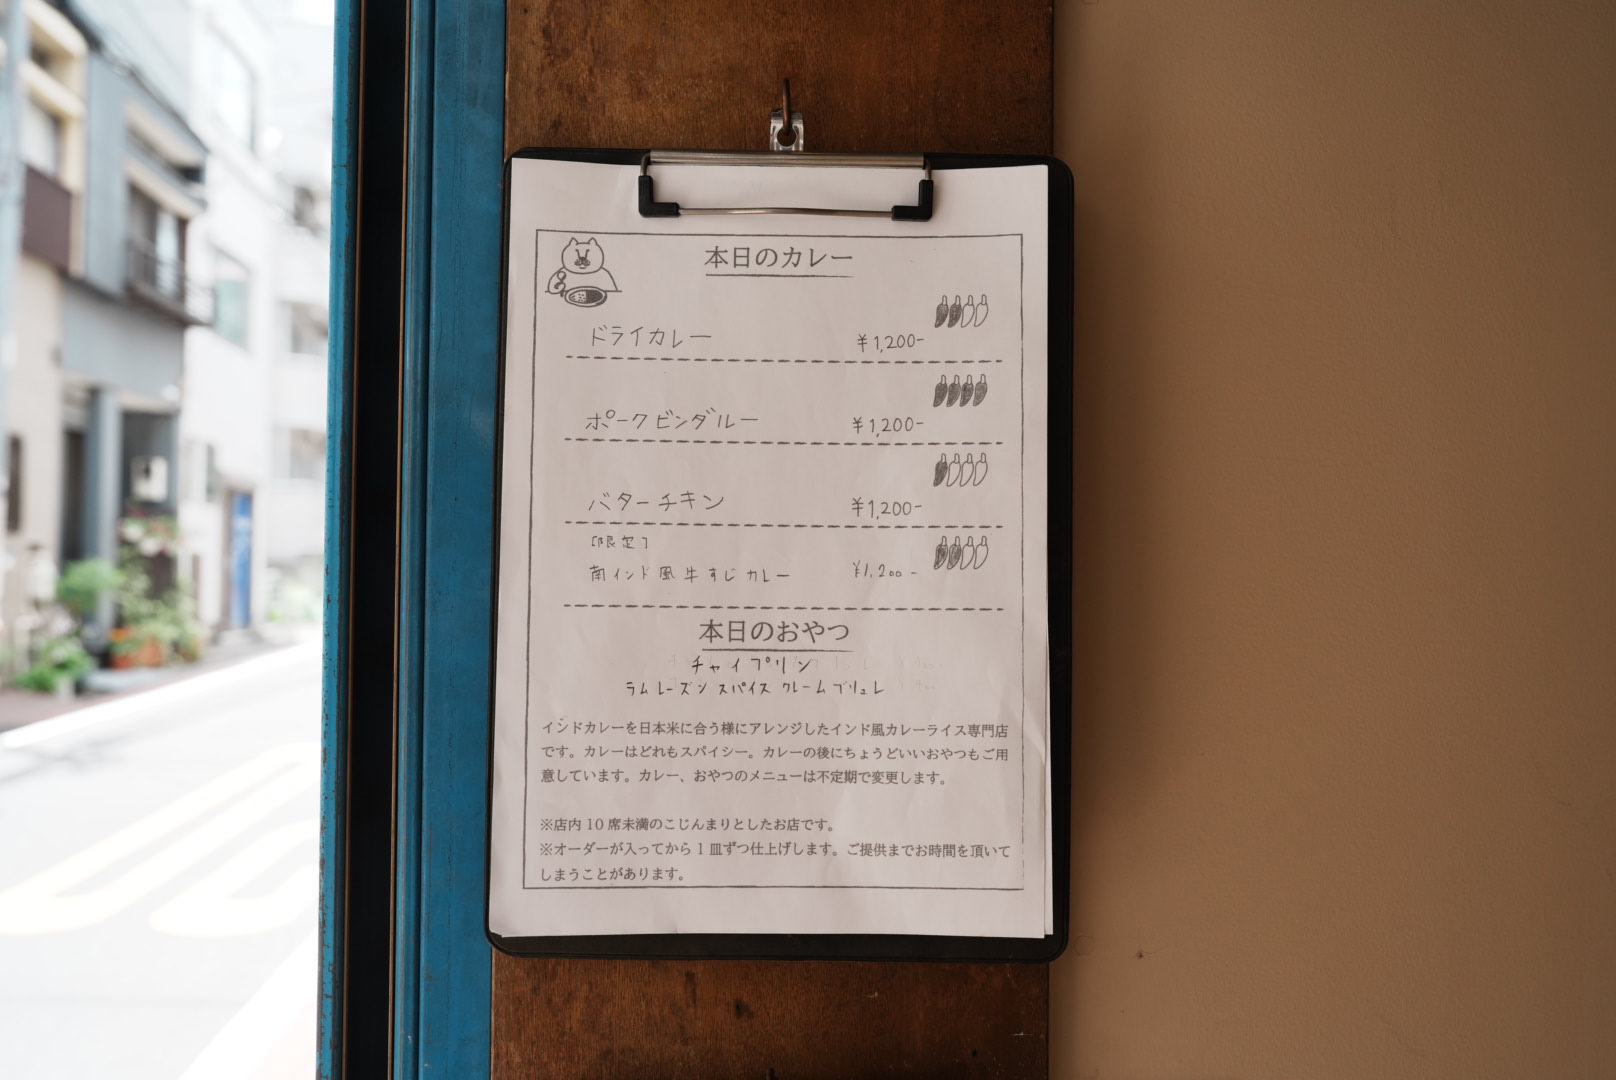 本日のカレー
ドライカレー ¥1,200-
ポークビンダルー ¥1,200-
バターチキン ¥1,200-
[限定]
南インド風牛すじカレー ¥1,200-
本日のおやつ
チャイプリン
ラムレーズンスパイスクレームブリュレ
インドカレーを日本米に合う様にアレンジしたインド風カレーライス専門店
です。カレーはどれもスパイシー。カレーの後にちょうどいいおやつもご用
意しています。カレー、おやつのメニューは不定期で変更します。
※店内 10 席未満のこじんまりとしたお店です。
※オーダーが入ってから 1 皿ずつ仕上げします。ご提供までお時間を頂いて
しまうことがあります。